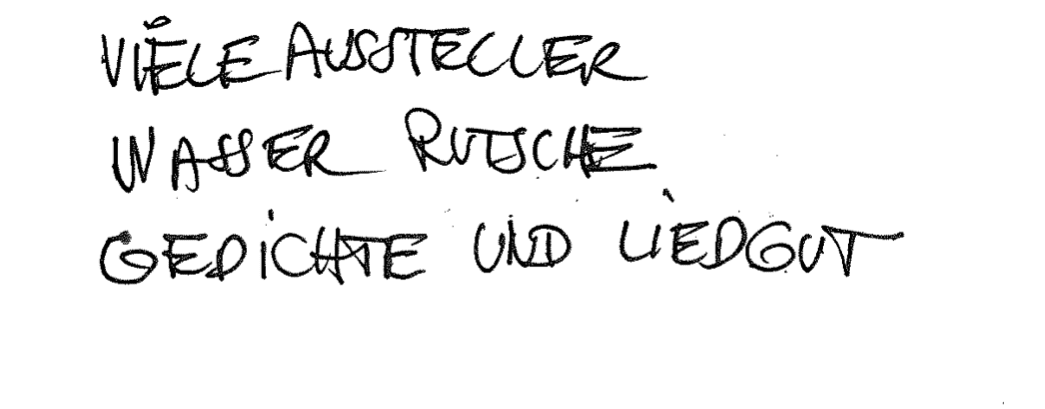 VIELE AUSSTELLER
WASSER RUTSCHE
GEDICHTE UND LIEDGUT